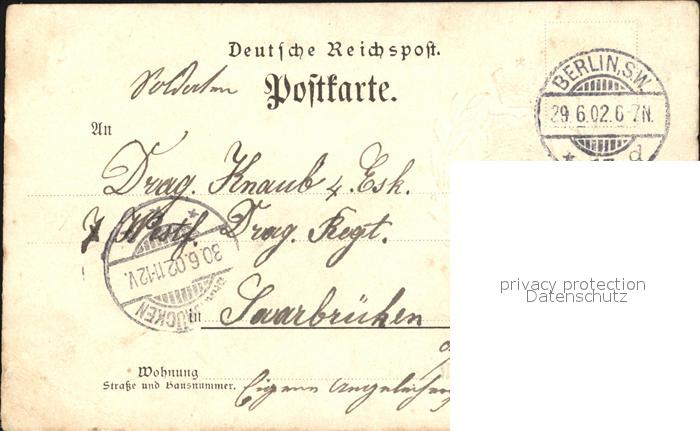 Deutsche Reichspost.
Soldaten
Postkarte.
BERLIN, S.W.
29.6.02.6-7N.
d
An
Drag. Knaub 4. Esk.
7 Westf. Drag. Regt.
30.6.02.11-12V.
in Saarbrücken
Wohnung
Straße und Hausnummer.
Eigene Angelegenh
privacy protection
Datenschutz